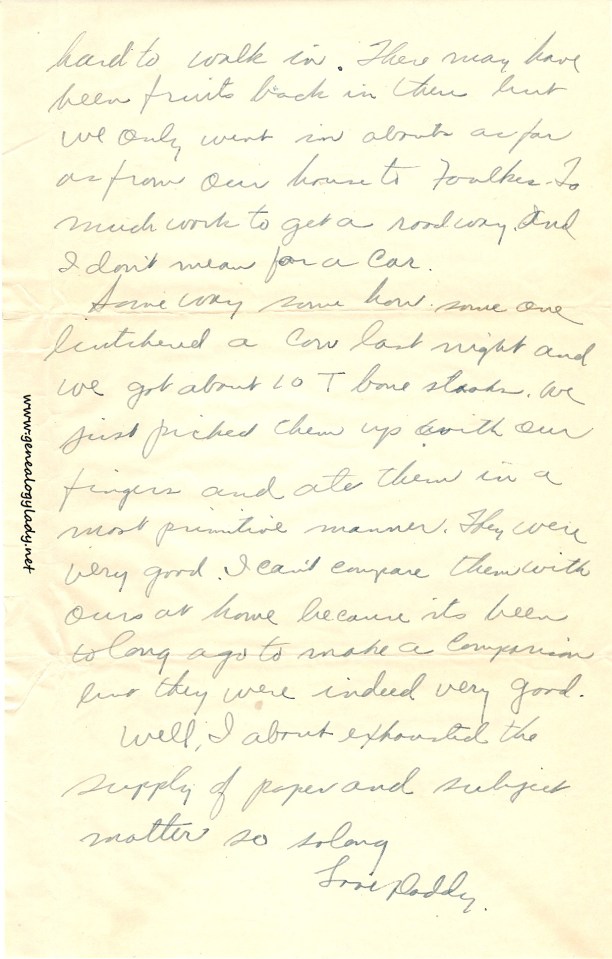 hard to walk in. There may have
been fruits back in there but
we only went in about as far
as from our house to Foulkes - To
much work to get a road way. And
I don't mean for a car.
Some way some how some one
butchered a cow last night and
we got about 10 T bone steaks. We
just picked them up with our
fingers and ate them in a
most primitive manner. They were
very good. I can't compare them with
ours at home because its been
to long ago to make a comparison
but they were indeed very good.
Well, I about exhausted the
supply of paper and subject
matter so solong
Love Daddy.
www.genealogylady.net